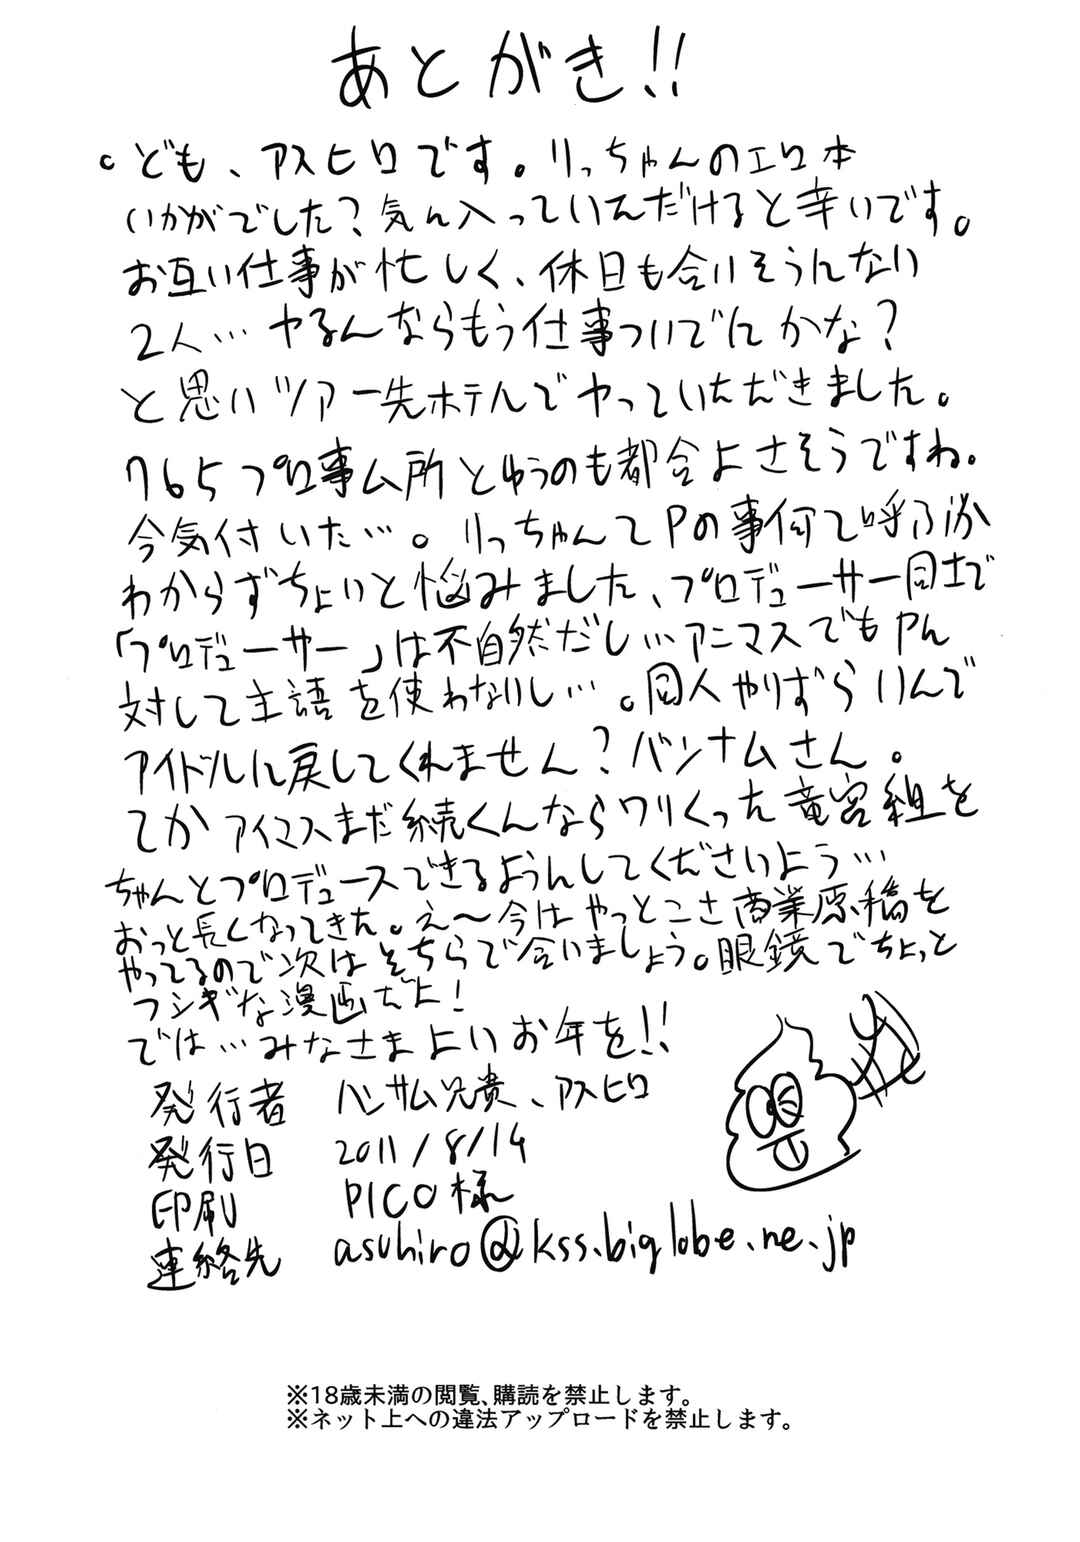 あとがき!!
。ども、アスヒロです。りっちゃんのエロ本
いかがでした？気に入っていただけると幸いです。
お互い仕事が忙しく、休日も合いそうにない
2人…ヤるんならもう仕事ついでにかな？
と思いツアー先ホテルでヤっていただきました。
765プロ事ム所とゆうのも都合よさそうですね。
今気付いた…。りっちゃんてPの事何て呼ぶか
わからずちょいと悩みました、プロデューサー同士で
「プロデューサー」は不自然だし…アニマスでもPに
対して主語を使わないし…。同人やりずらいんで
アイドルに戻してくれません？バンナムさん。
てかアイマスまだ続くんならワリくった竜宮組を
ちゃんとプロデュースできるようにしてくださいよう…
おっと長くなってきた。え〜今はやっとこさ商業原稿を
やってるので次はそちらで合いましょう。眼鏡でちょっと
フシギな漫画だよ！
では…みなさまよいお年を!!
発行者 ハンサム兄貴、アスヒロ
発行日 2011/8/14
印刷 PICO様
連絡先 asuhiro@kss.biglobe.ne.jp
※18歳未満の閲覧、購読を禁止します。
※ネット上への違法アップロードを禁止します。